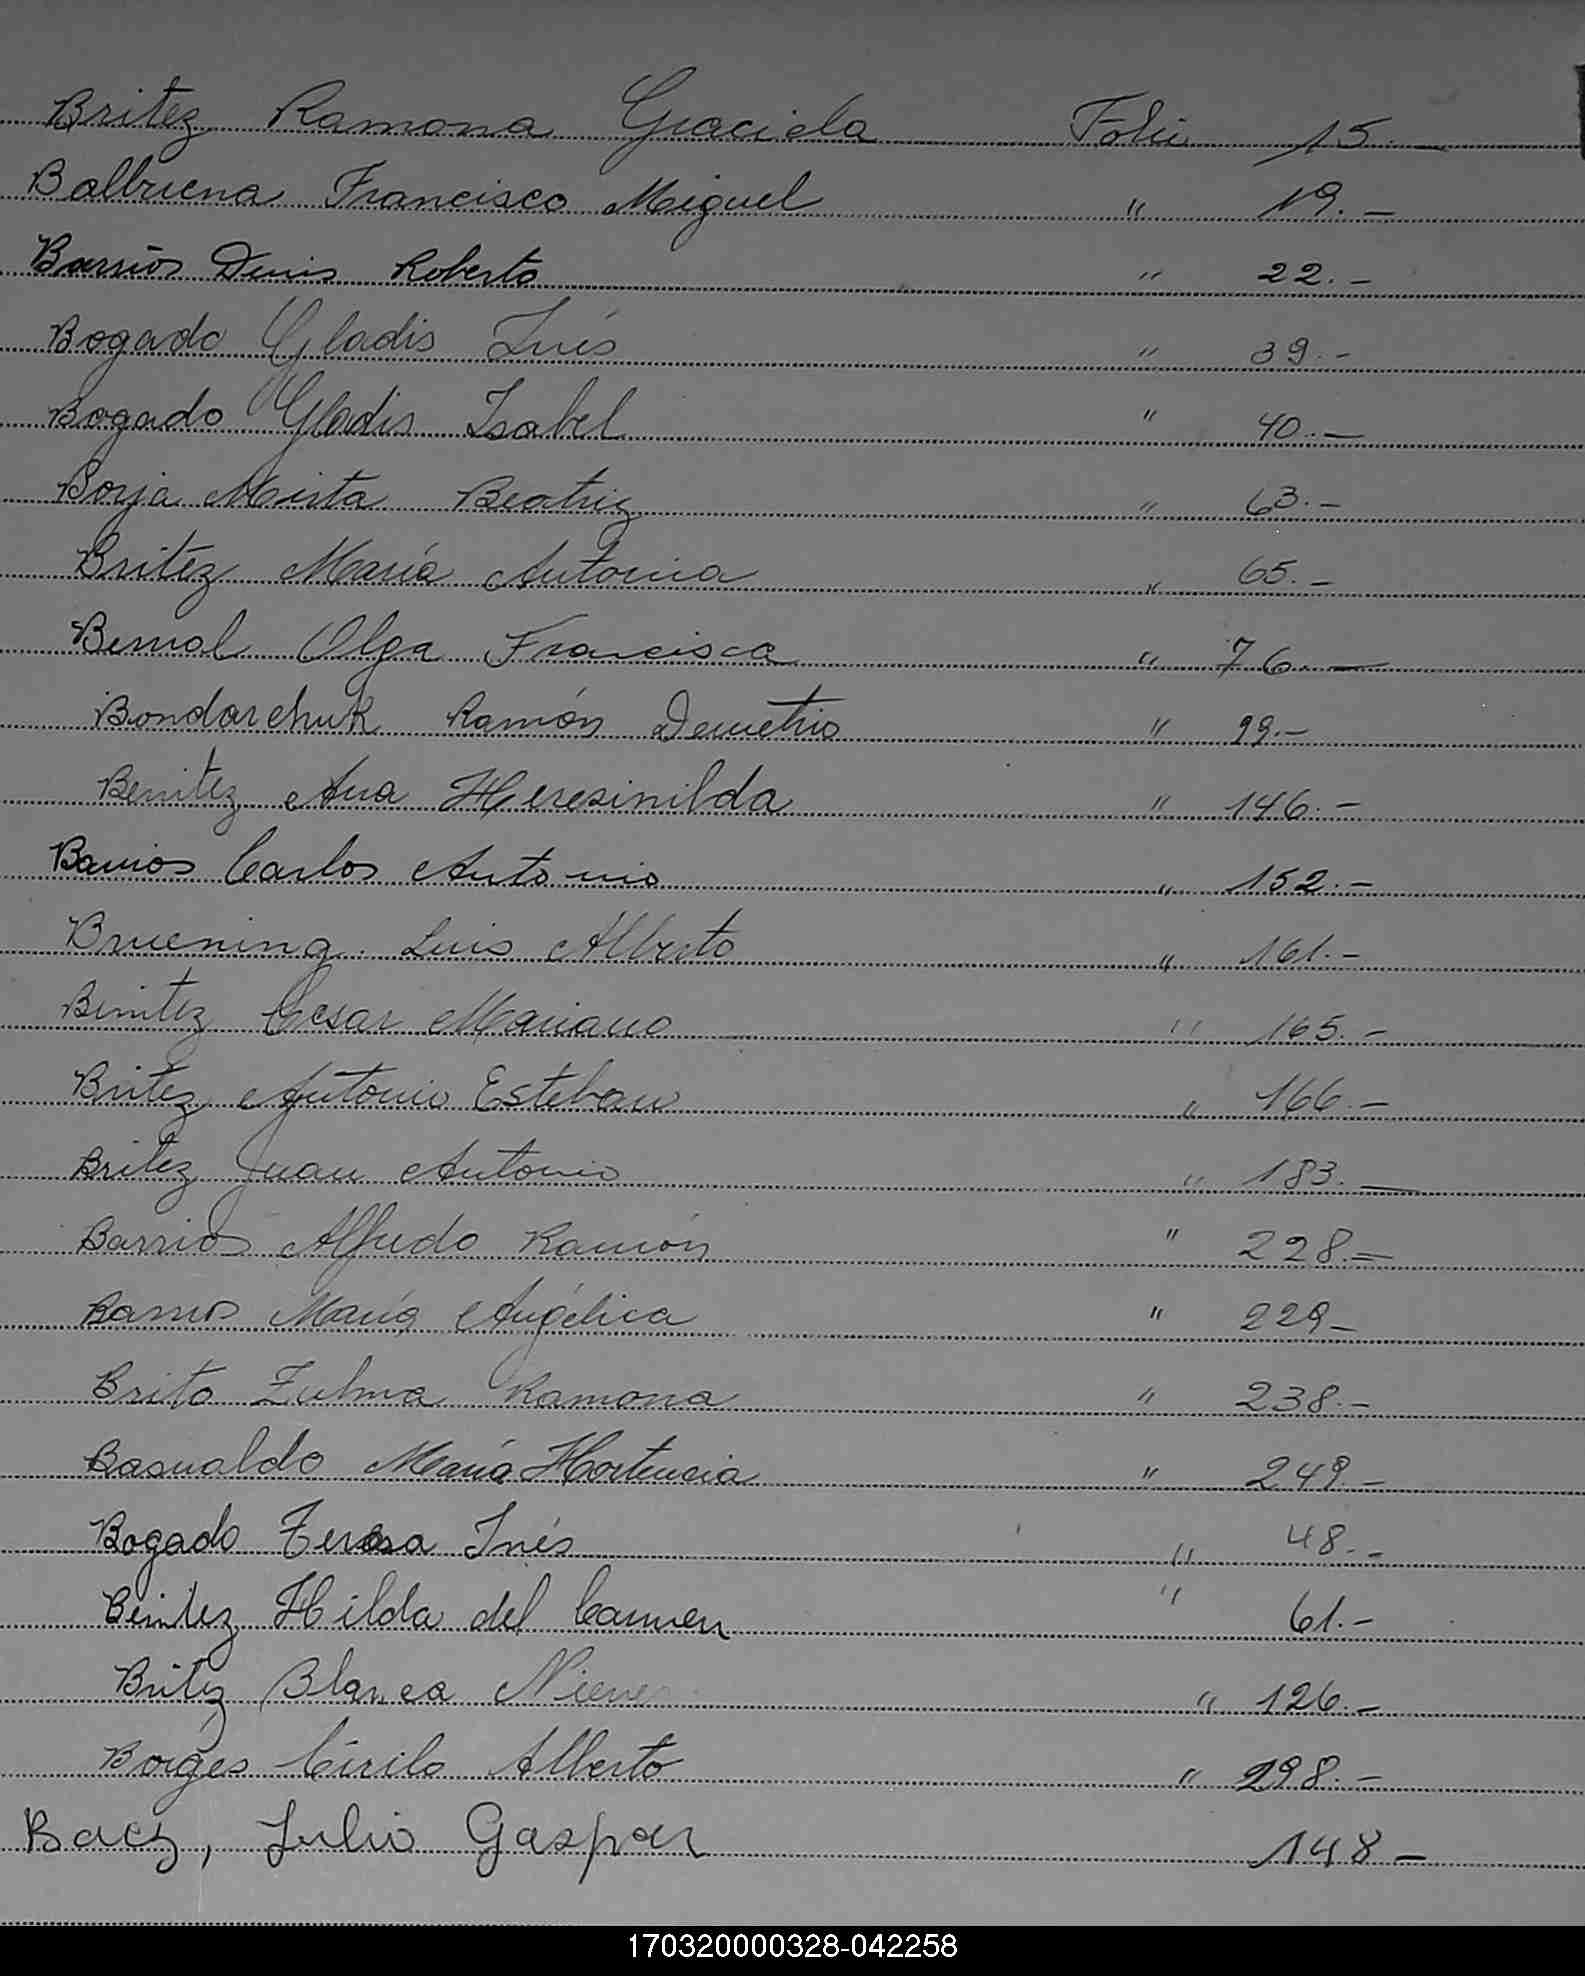 Britez Ramona Graciela Folio 15.—
Balbuena Francisco Miguel " 19.—
Barrios Denis Roberto " 22.—
Bogado Gladis Inés " 39.—
Bogado Gladis Isabel " 40.—
Borja Mirta Beatriz " 63.—
Britez María Antonia " 65.—
Bernal Olga Francisca " 76.—
Bondarchuk Ramón Demetrio " 99.—
Benitez Ana Heresinilda " 146.—
Barrios Carlos Antonio " 152.—
Bruening Luis Alberto " 161.—
Benitez Cesar Mariano " 165.—
Britez Antonio Esteban " 166.—
Britez Juan Antonio " 183.—
Barrios Alfredo Ramón " 228.=
María Angélica " 229—
Brito Zulma Ramona " 238.—
Basualdo María Hortencia " 249.—
Bogado Teresa Inés " 48.—
Benitez Hilda del Carmen " 61.—
Britez Blanca Nieves " 126.—
Borges Cirilo Alberto " 298.—
Bacz, Julio Gaspar 148—
170320000328-042258